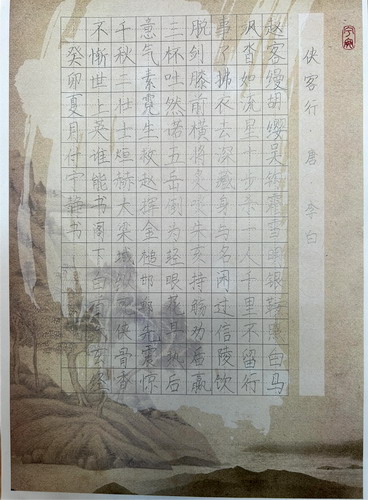 侠客行·唐·李白
赵客缦胡缨吴钩霜雪明银鞍照白马
飒沓如流星十步杀一人千里不留行
事了拂衣去深藏身与名闲过信陵饮
脱剑膝前横将炙啖朱亥持觞劝侯嬴
三杯吐然诺五岳倒为轻眼花耳热后
意气素霓生救赵挥金槌邯郸先震惊
千秋二壮士烜赫大梁城纵死侠骨香
不惭世上英谁能书阁下白首太玄经
癸卯夏月付宇静书